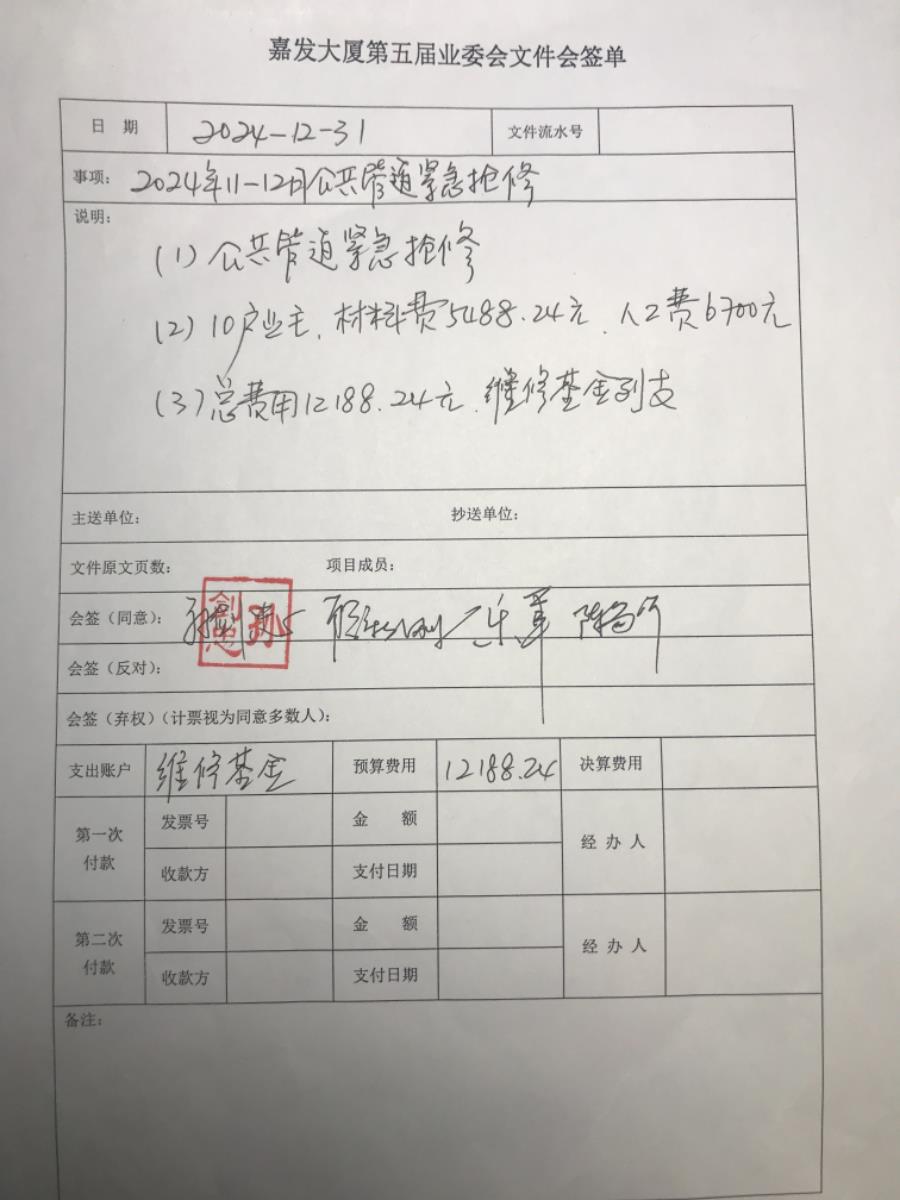 嘉发大厦第五届业委会文件会签单
日 期 2024-12-31 文件流水号
事项: 2024年11-12月公共管道紧急抢修
说明:
(1)公共管道紧急抢修
(2)10户业主、材料费5488.24元、人工费6700元
(3)总费用12188.24元、维修基金列支
主送单位: 抄送单位:
文件原文页数: 项目成员:
会签(同意):
会签(反对):
会签(弃权)(计票视为同意多数人):
支出账户 维修基金 预算费用 12188.24 决算费用
第一次付款 发票号 金 额 经 办 人
收款方 支付日期
第二次付款 发票号 金 额 经 办 人
收款方 支付日期
备注: